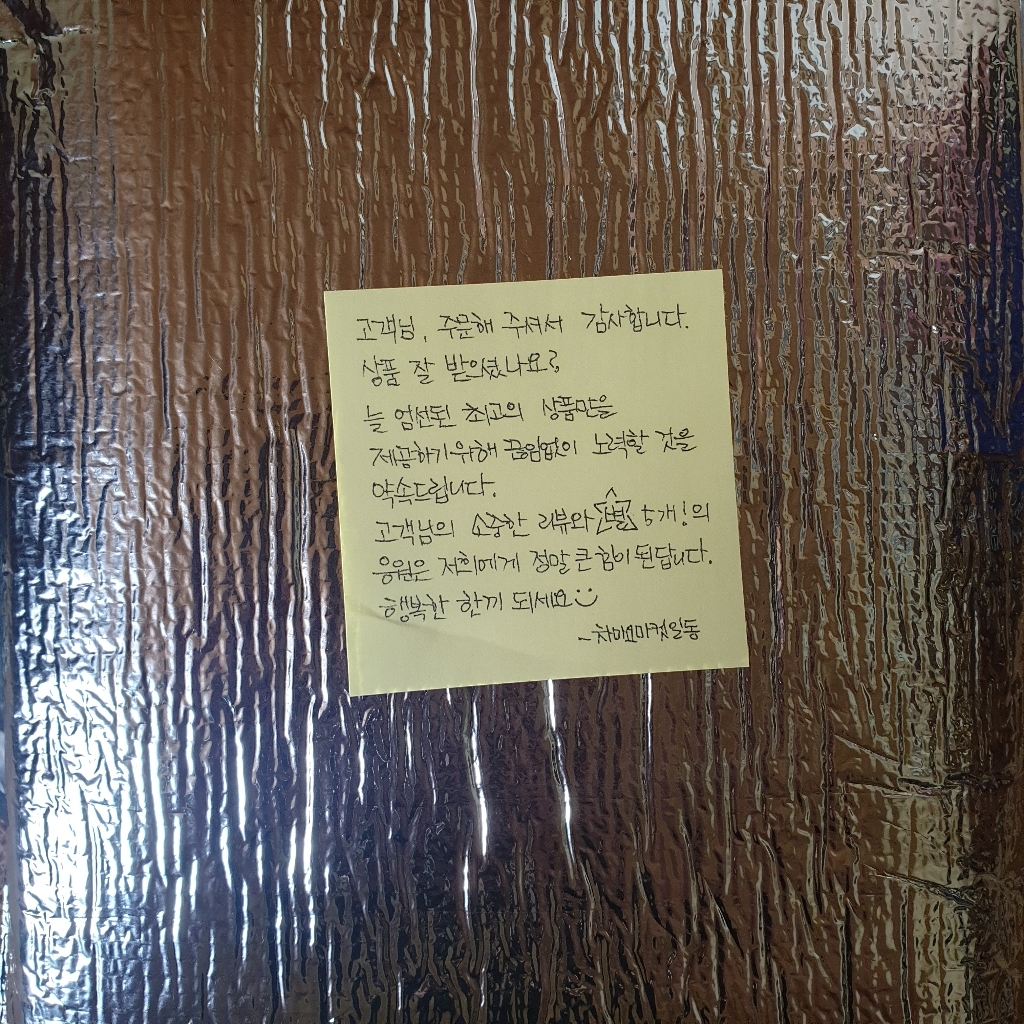 고객님, 주문해 주셔서 감사합니다.
상품 잘 받으셨나요?
늘 엄선된 최고의 상품만을
제공하기위해 끊임없이 노력할 것을
약속드립니다.
고객님의 소중한 리뷰와 별 5개!의
응원은 저희에게 정말 큰 힘이 된답니다.
행복한 한끼 되세요
-차이요마켓일동